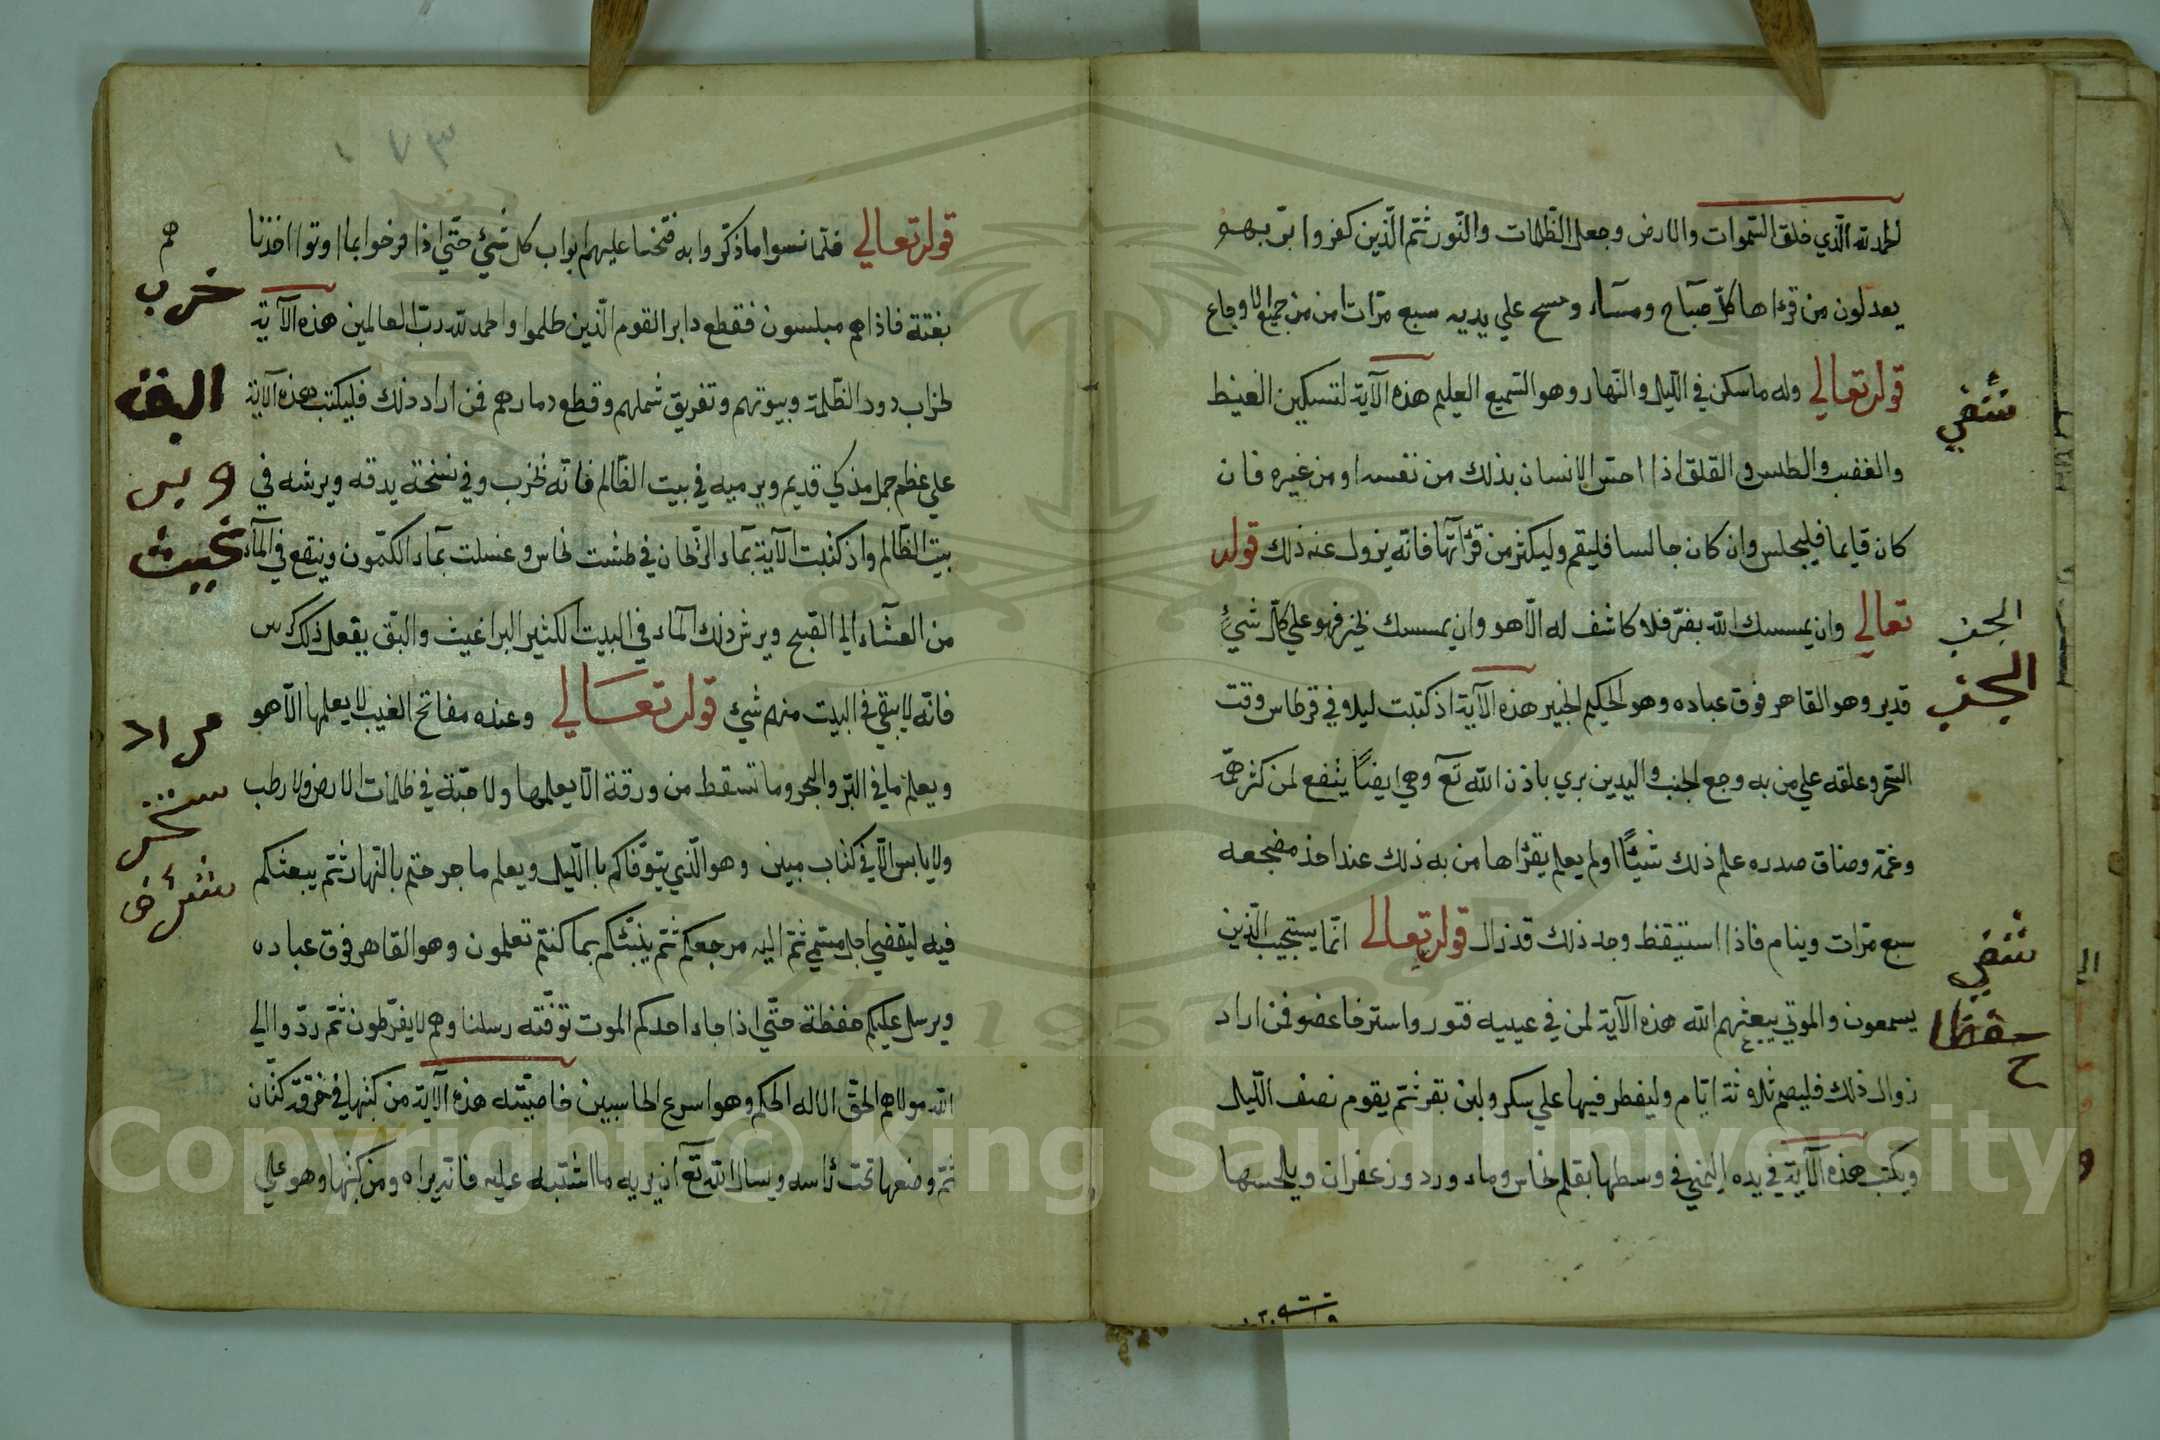 الحمد لله الّذي خلق السّموات والارض وجعل الظّلمات والنّور ثمّ الّذين كفروا بربّهم
يعدلون من قرءاها كلّ صباح ومسآء ومسح علي يديه سبع مرّات امن من جميع الاوجاع
قوله تعالي وله ما سكن في اللّيل والنّهار وهو السّميع العليم هذه الآية لتسكين الغيظ
والغضب والطلس والقلق اذا احتس الانسان بذلك من نفسه او من غيره فان
كان قايما فليجلس وان كان جالسا فليقم وليكثر من قرآتها فانّه يزول عنه ذلك قوله
تعالي وان يمسسك اللّه بضرّ فلا كاشف له الّا هو وان يمسسك بخير فهو علي كلّ شيءٍ
قدير وهو القاهر فوق عباده وهو الحكيم الخبير هذه الآية اذ كتبت ليلا في قرطاس وقت
السّحر وعلقه علي من به وجع الجنب واليدين بري باذن اللّه تع وهي ايضًا ينفع لمن كثر همّه
وغمّه وضاق صدره علم ذلك شيئًا اولم يعلم يقرٔاها من به ذلك عند اخذ مضجعه
سبع مرّات وينام فاذا استيقظ وجد ذلك قد زال قوله تعالي انّما يستجيب الّذين
يسمعون والموتي يبعثهم اللّه هذه الآية لمن في عينيه فتور واسترخا عضو فمن اراد
زوال ذلك فليصم ثلاثة ايّام وليفطر فيها علي سكر ولبن بقر ثمّ يقوم نصف اللّيل
ويكتب هذه الآية في يده اليمني في وسطها بقلم نحاس وماء ورد وزعفران ويلحسها
شفي
الجنب
الجنب
شفي
قوله تعالي فلمّا نسوا ما ذكّروا به فتحنا عليهم ابواب كل شئ حتّي اذا فرحوا بما اوتوا اخذنا
بغتة فاذا هم مبلسون فقطع دابر القوم الّذين ظلموا والحمد للّه ربّ العالمين هذه الآية
لخراب دور الظّلمة وبيوتهم وتفريق شملهم وقطع دمارهم فمن اراد ذلك فليكتب هذه الآية
علي عظم جمل مذكي قديم ويرميه في بيت الظّالم فانّه يخرب وفي نسخة يدقه ويرشه في
بيت الظّالم واذ كتبت الآية بمآء الرّيحان في طشت نحاس وغسلت بمآء الكمّون وينقع في المآء
من العشآء الي القبح ويرش ذلك المآء في البيت الكثير البراغيث والبق يفعل ذلك
فانّه لا يبقي في البيت منهم شئ قوله تعالي وعنده مفاتح الغيب لا يعلمها الّا هو
ويعلم ما في البّر والبحر وما تسقط من ورقة الّا يعلمها ولا حبّة في ظلمات الارض ولا رطب
ولا يابس الّا في كتاب مبين وهو الّذي يتوّفاكم باللّيل ويعلم ما جرحتم بالنّهار ثمّ يبعثكم
فيه ليقضي اجل مسّمي ثمّ اليه مرجعكم ثمّ ينبّئكم بما كنتم تعلمون وهو القاهر فوق عباده
ويرسل عليكم حفظة حتّي اذا جاء احدكم الموت توفّته رسلنا وهم لا يفرّطون ثمّ ردّوا الي
اللّه مولاهم الحقّ الا له الحكم وهو اسرع الحاسبين خاصيّته هذه الآية من كتبها في خرقة كتّان
ثمّ وضعها تحت رٔاسه ويسال اللّه تع ان يريه ما اشتبه عليه فانّه يراه ومن كتبها وهو علي
هم
خرب
مراد
Copyright © King Saud University
1957